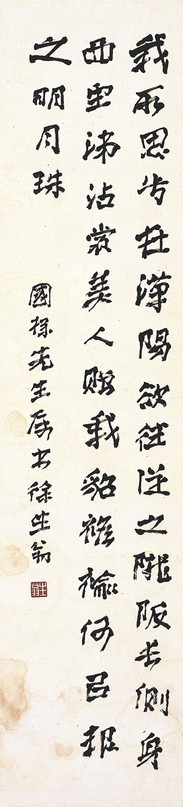 我所思兮在漢陽欲往從之隴阪長側身
西望涕沾裳美人贈我貂襜褕何㠯報
之明月珠
國樑先生屬書徐生翁